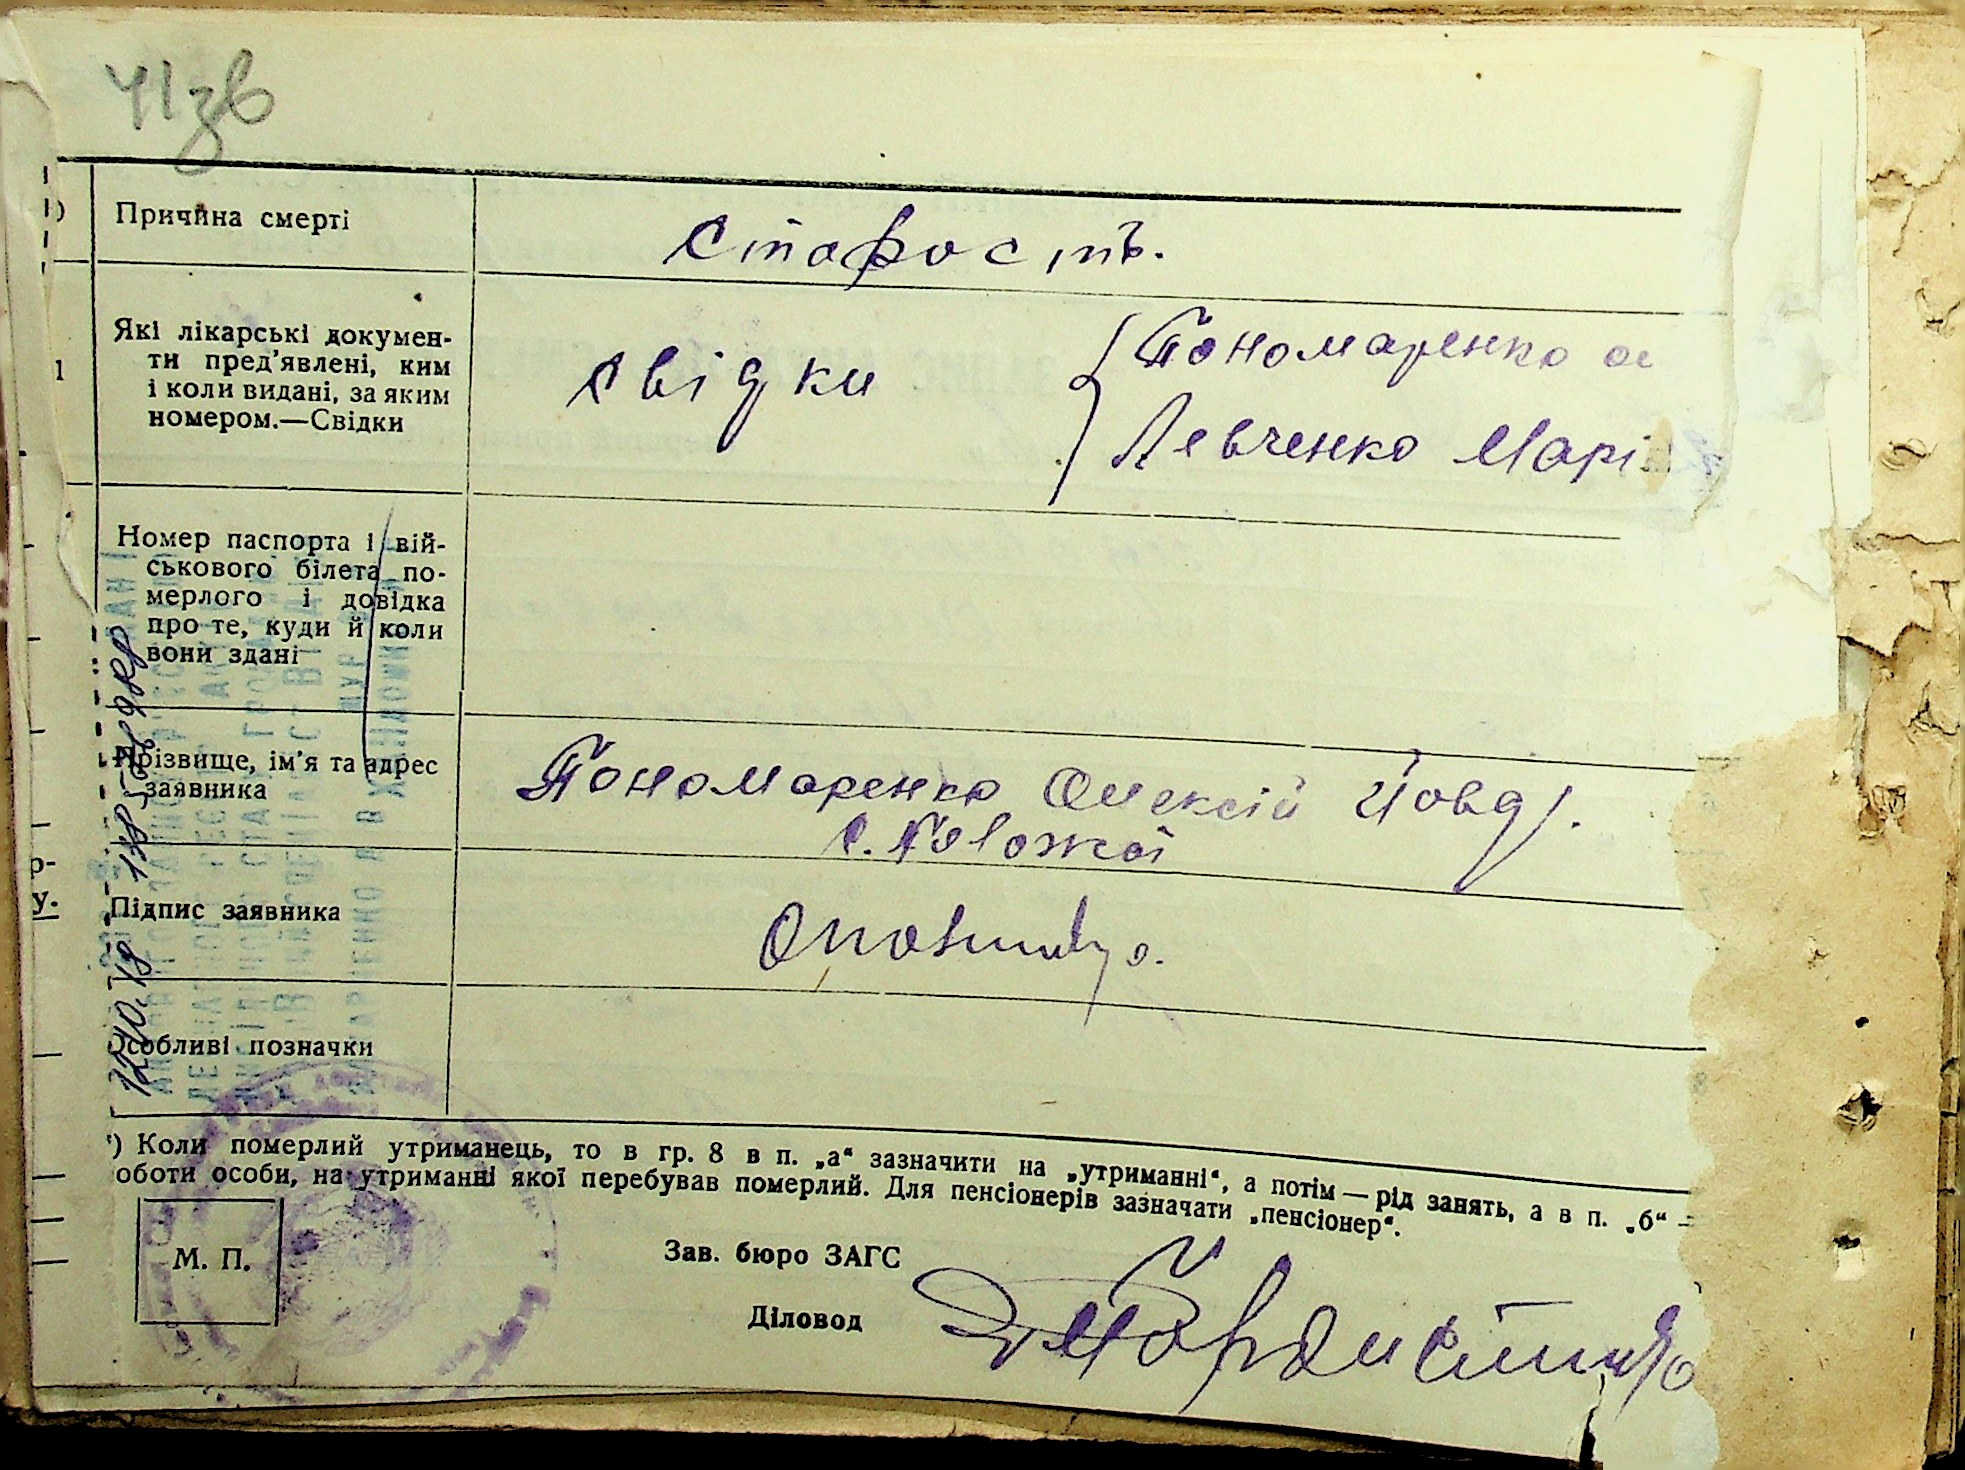 41зв
Причина смерті
Старость.
Які лікарські докумен-
ти пред'явлені, ким
і коли видані, за яким
номером.—Свідки
1
свідки
Пономаренко ол
Левченко Марі
Номер паспорта і вій-
ськового білета по-
мерлого і довідка
про те, куди й коли
вони здані
Прізвище, ім'я та адрес
заявника
Пономаренко Олексій Йовд.
р-
у.
Підпис заявника
Особливі позначки
*) Коли померлий утриманець, то в гр. 8 в п. „а“ зазначити на „утриманні“, а потім — рід занять, а в п. „б“ —
оботи особи, на утриманні якої перебував померлий. Для пенсіонерів зазначати „пенсіонер“.
М. П.
Зав. бюро ЗАГС
Діловод